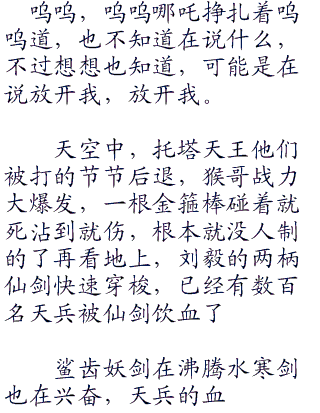 呜呜，呜呜哪吒挣扎着呜
呜道，也不知道在说什么，
不过想想也知道，可能是在
说放开我，放开我。
天空中，托塔天王他们
被打的节节后退，猴哥战力
大爆发，一根金箍棒碰着就
死沾到就伤，根本就没人制
的了再看地上，刘毅的两柄
仙剑快速穿梭，已经有数百
名天兵被仙剑饮血了
鲨齿妖剑在沸腾水寒剑
也在兴奋，天兵的血